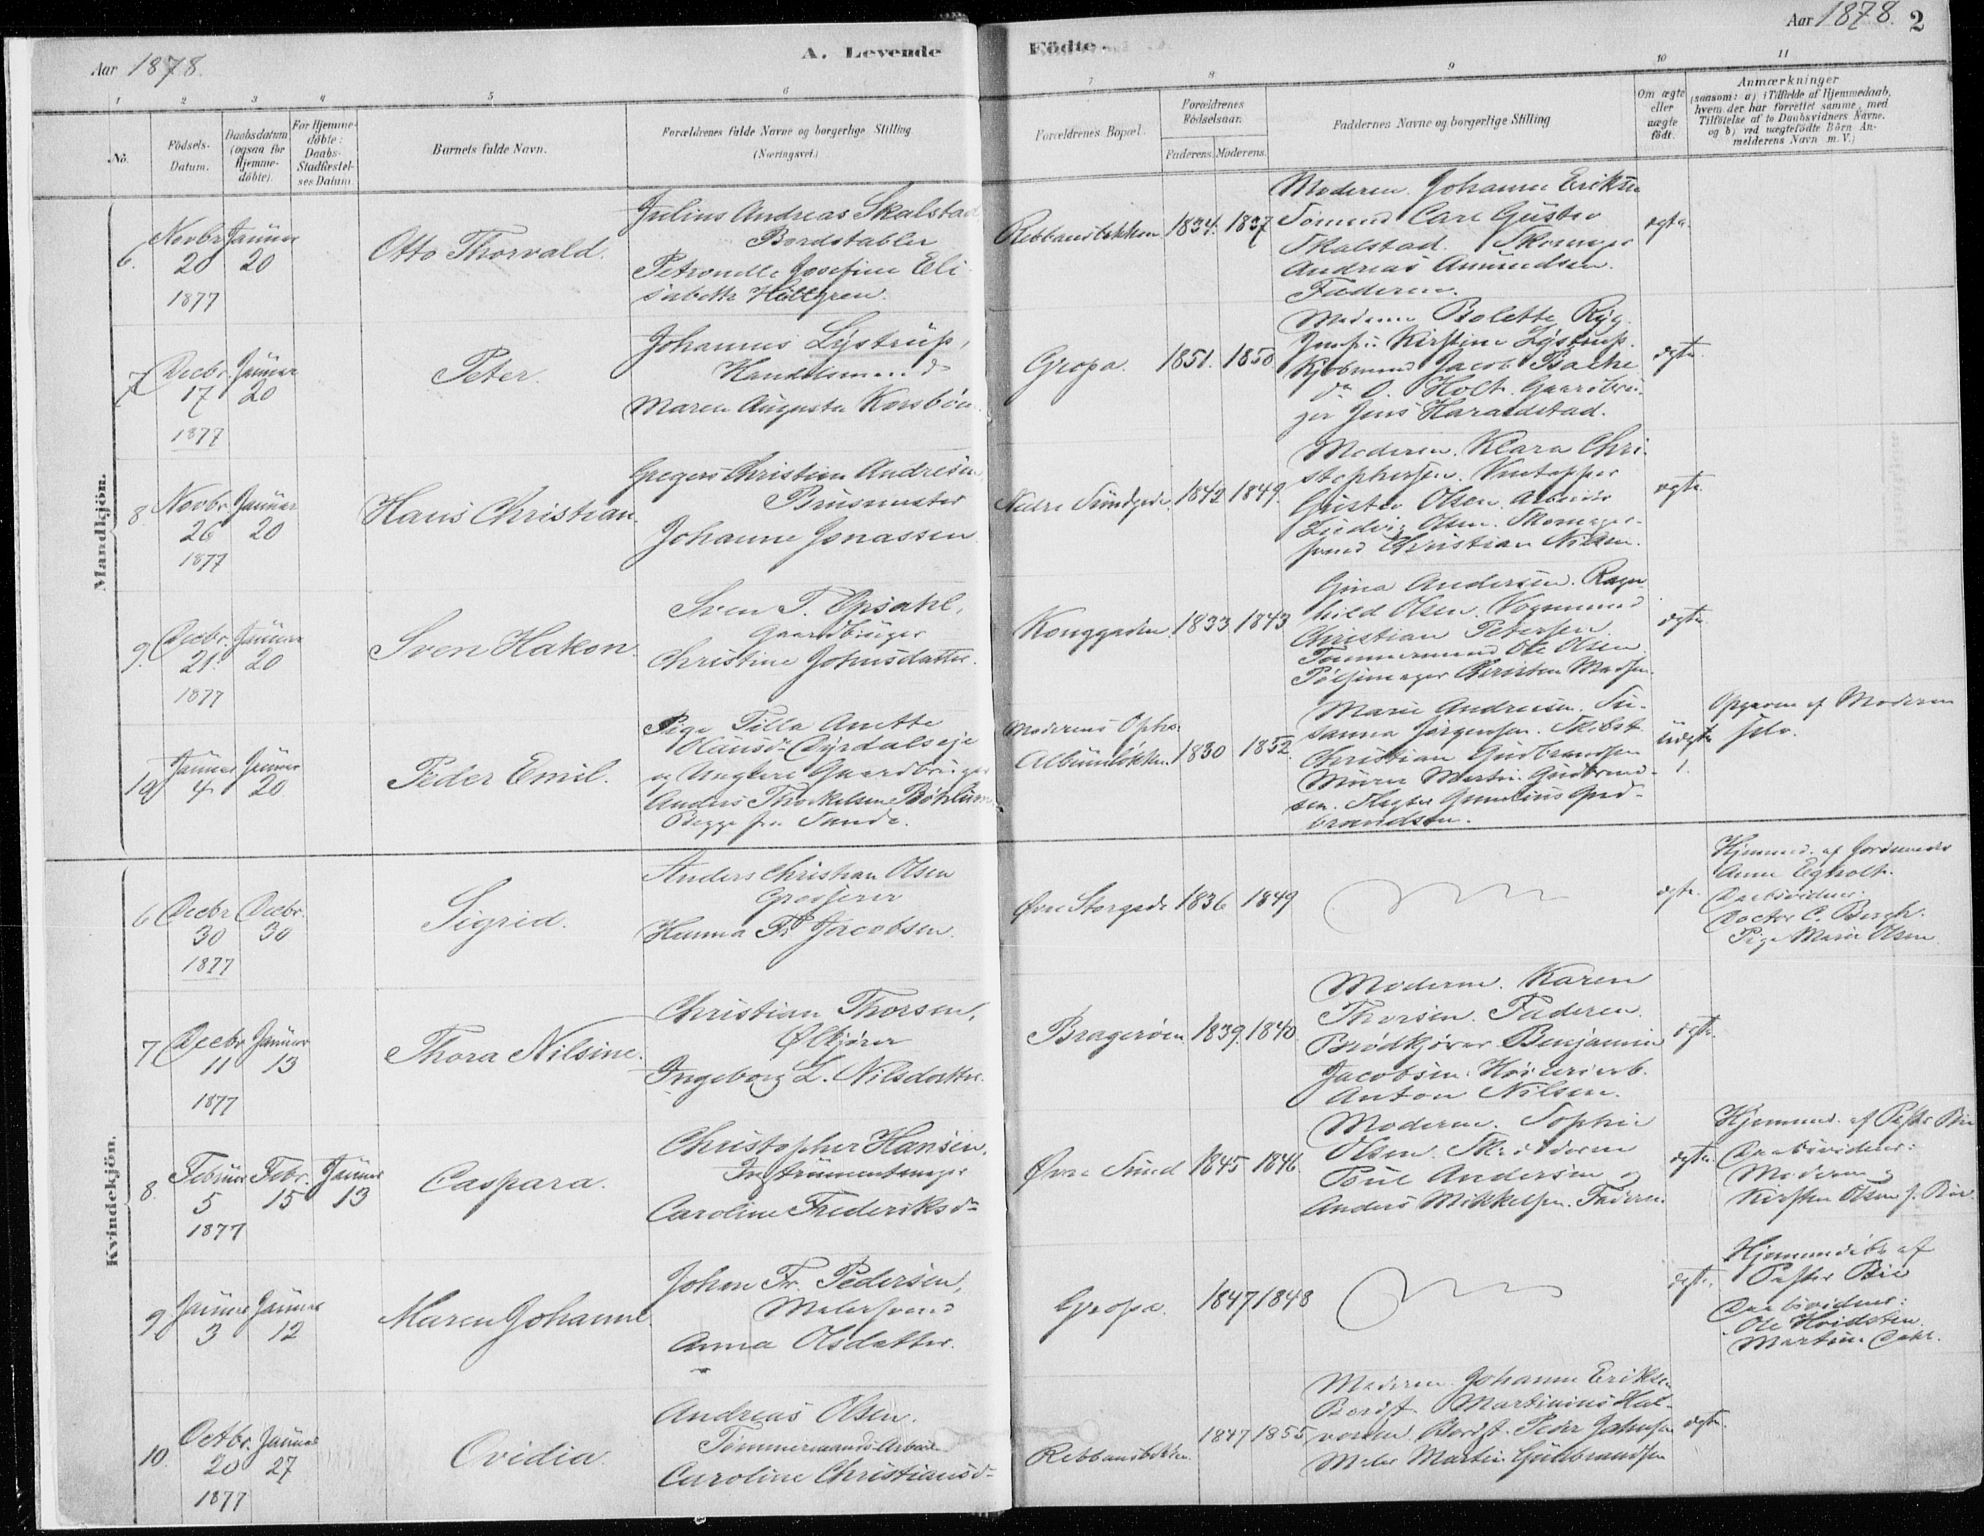 Aar 1878.
A. Levende
Födte.
Aar 1878. 2
1 2 3 4 5 6 7 8 9 10 11
No.
Födsels-Datum.
Daabsdatum (ogsaa for Hjemme-döbte).
For Hjemme-döbte: Daabs-Stadfæstelses Datum.
Barnets fulde Navn.
Forældrenes fulde Navne og borgerlige Stilling
(Næringsvei.)
Forældrenes Bopæl.
Forældrenes Födselsaar.
Faderens. Moderens.
Faddernes Navne og borgerlige Stilling
Om ægte eller uægte födt.
Anmærkninger
(saasom: a) i Tilfælde af Hjemmedaab,
hvem der har forrettet samme, med
Tilföielse af to Daabsvidners Navne.
og b) ved uægtefödte Börn An-
melderens Navn m. V.)
Mandkjön.
6. Novbr 20 1877
Januar 20
Otto Thorvald.
Julius Andreas Skalstad
Bordstabler
Petronelle Josefine Eli
sabeth Hultgren.
Rebbansbakken 1834. 1837
Moderen. Johanne Eriksen
Sömand Carl Gustav
Skalstad. Skomager
Andreas Amundsen.
Faderen.
ægte.
7 Decbr. 17 1877
Januar 20
Peter.
Johannes Lystrup,
Handelsmand
Maren Augusta Korsböen.
Gropa. 1851. 1850
Moderen Bolette Ryg.
Jomfru Kirstine Lystrup.
Kjöbmand Jacob Bache
do O. Holt. Gaardbru-
ger Jens Haraldstad.
ægte.
8 Novbr. 26 1877
Januar 20
Hans Christian.
Gregers Christian Andresen
Brusmester
Johanne Jonassen
Nedre Sundgade. 1842 1849.
Moderen. Klara Chri-
stophersen. Vintapper
Gustav Olsen. Arbeider
Ludvig Olsen. Skomager-
svend Christian Nilsen.
ægte.
9. Decbr. 21. 1877
Januar 20
Sven Hakon.
Sven T. Opsahl,
Gaardbruger
Christine Johnsdatter.
Konggaden. 1833 1843
Gina Andersen. Ragn-
hild Olsen. Vognmand
Christian Petersen
Tömmermand Ole Olsen.
Pölsemager Christen Madsen.
ægte.
10 Januar 4
Januar 20
Peder Emil.
Pige Tilla Anette
Hansdr Dyrdalseje
og Ungkarl Gaardbruger
Anders Thorkelsen
Begge fra Sande.
Moderens Ophs.
Albumlökken. 1830 1852.
Marie Andersen. Su-
sanna Jörgensen. Skibst.
Christian Gudbrandsen
Murer Martin Gudbrand-
sen. Slagter Gunelius Gud-
brandsen.
uægte 1.
Opgaven af Moderen
selv.
Kvindekjön.
6 Decbr 30 1877
Decbr. 30
Sigrid.
Anders Christian Olsen
Grosserer
Hanna Fr. Jacobsen.
Övre Storgade 1836 1849
ægte.
Hjemmed. af Jordemoder
Anne Egholt.
Daabsvidner:
Doctor C. Bergh.
Pige Marie Olsen.
7 Decbr 11 1877
Januar 13
Thora Nilsine.
Christian Thorsen,
Ölkjörer
Ingeborg L. Nilsdatter.
Bragerøen 1839. 1840.
Moderen. Karen
Thorsen. Faderen.
Brödkjörer Benjamin
Jacobsen.
Anton Nilsen.
ægte.
8. Februar 5 1877
Febr. 15
Januar 13
Caspara.
Christopher Hansen.
Instrumentmager
Caroline Frederiksdr
Övre Sund 1845 1846.
Moderen. Sophie
Olsen.
Poul Andersen og
Anders Mikkelsen. Faderen.
ægte.
Hjemmed. af Pastor Bie
Daabsvidner:
Moderen og
Kirsten Olsen f. Bie.
9 Januar 3
Januar 12
Maren Johanne.
Johan Fr. Pedersen,
Malersvend
Anna Olsdatter.
Gropa. 1847 1848
ægte.
Hjemmedöbt af
Pastor Bie
Daabsvidner:
Ole Hvidsten.
Martin Dahl.
10. Octbr. 20 1877
Januar 27
Ovidia.
Andreas Olsen.
Tömmermands Arbeid.
Caroline Christiansdr
Rebbansbakken. 1847 1855
Moderen Johanne Eriksen
Bordst. Martinius Hal-
vorsen Bordst. Peder Johnsen
Maler Martin Gulbrandsen
ægte.